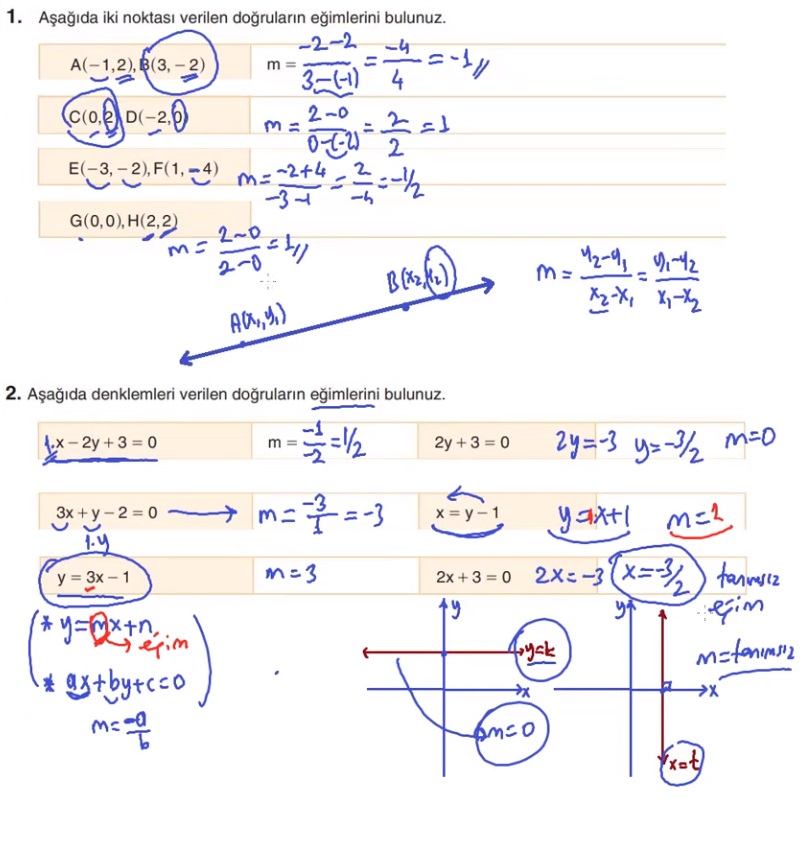 1. Aşağıda iki noktası verilen doğruların eğimlerini bulunuz.
A(−1,2), B(3, −2) m = -2-2/3-(-1) = -4/4 = -1//
C(0,2) D(−2,0) m = 2-0/0-(-2) = 2/2 = 1
E(−3, −2), F(1, −4) m = -2+4/-3-1 = 2/-4 = -1/2
G(0,0), H(2,2) m = 2-0/2-0 = 1//
A(x₁,y₁) B(x₂,y₂) m = y₂-y₁/x₂-x₁ = y₁-y₂/x₁-x₂
2. Aşağıda denklemleri verilen doğruların eğimlerini bulunuz.
1.x − 2y + 3 = 0 m = -1/-2 = 1/2 2y + 3 = 0 2y=-3 y=-3/2 m=0
3x + y − 2 = 0 m = -3/1 = -3 x = y − 1 y=1.x+1 m=1
1.y
y = 3x − 1 m=3 2x + 3 = 0 2x=-3 x=-3/2 tanımsız
eğim
* y=mx+n eğim
* ax+by+c=0
m=-a/b
y y=k x m=0
y x x=t m=tanımsız